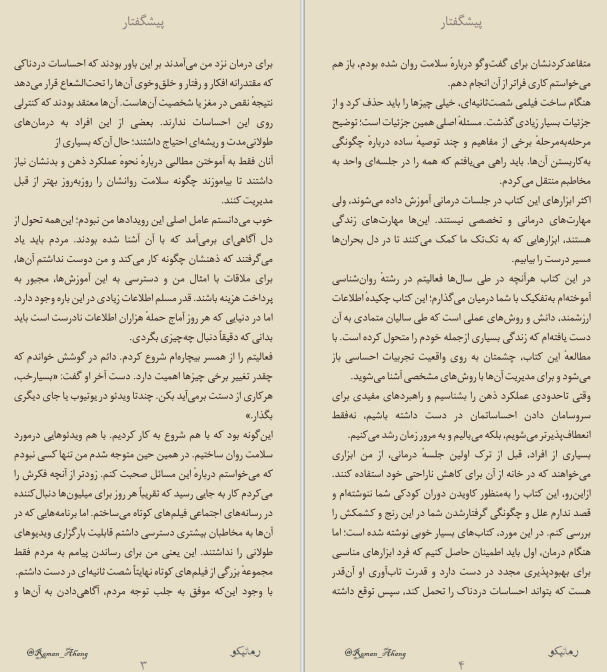 پیشگفتار
برای درمان نزد من می‌آمدند بر این باور بودند که احساسات دردناکی
که مقتدرانه افکار و رفتار و خلق‌وخوی آن‌ها را تحت‌الشعاع قرار می‌دهد
نتیجهٔ نقص در مغز یا شخصیت آن‌هاست. آن‌ها معتقد بودند که کنترلی
روی این احساسات ندارند. بعضی از این افراد به درمان‌های
طولانی‌مدت و ریشه‌ای احتیاج داشتند؛ حال آن‌که بسیاری از
آنان فقط به آموختن مطالبی دربارهٔ نحوهٔ عملکرد ذهن و بدنشان نیاز
داشتند تا بیاموزند چگونه سلامت روانشان را روزبه‌روز بهتر از قبل
مدیریت کنند.
خوب می‌دانستم عامل اصلی این رویدادها من نبودم؛ این‌همه تحول از
دل آگاهی‌ای برمی‌آمد که با آن آشنا شده بودند. مردم باید یاد
می‌گرفتند که ذهنشان چگونه کار می‌کند و من دوست نداشتم آن‌ها،
برای ملاقات با امثال من و دسترسی به این آموزش‌ها، مجبور به
پرداخت هزینه باشند. قدر مسلم اطلاعات زیادی در این باره وجود دارد.
اما در دنیایی که هر روز آماج حملهٔ هزاران اطلاعات نادرست است باید
بدانی که دقیقاً دنبال چه‌چیزی بگردی.
فعالیتم را از همسر بیچاره‌ام شروع کردم. دائم در گوشش خواندم که
چقدر تغییر برخی چیزها اهمیت دارد. دست آخر او گفت: «بسیارخب،
هرکاری از دستت برمی‌آید بکن. چندتا ویدئو در یوتیوب یا جای دیگری
بگذار.»
این‌گونه بود که با هم شروع به کار کردیم. با هم ویدئوهایی درمورد
سلامت روان ساختیم. در همین حین متوجه شدم من تنها کسی نبودم
که می‌خواستم دربارهٔ این مسائل صحبت کنم. زودتر از آنچه فکرش را
می‌کردم کار به جایی رسید که تقریباً هر روز برای میلیون‌ها دنبال‌کننده
در رسانه‌های اجتماعی فیلم‌های کوتاه می‌ساختم. اما برنامه‌هایی که در
آن‌ها به مخاطبان بیشتری دسترسی داشتم قابلیت بارگزاری ویدیوهای
طولانی را نداشتند. این یعنی من برای رساندن پیامم به مردم فقط
مجموعهٔ بزرگی از فیلم‌های کوتاه نهایتاً شصت ثانیه‌ای در دست داشتم.
با وجود این‌که موفق به جلب توجه مردم، آگاهی‌دادن به آن‌ها و
رمانیکو
@Roman_Ahang
۳
پیشگفتار
متقاعدکردنشان برای گفت‌وگو دربارهٔ سلامت روان شده بودم، باز هم
می‌خواستم کاری فراتر از آن انجام دهم.
هنگام ساخت فیلمی شصت‌ثانیه‌ای، خیلی چیزها را باید حذف کرد و از
جزئیات بسیار زیادی گذشت. مسئلهٔ اصلی همین جزئیات است؛ توضیح
مرحله‌به‌مرحلهٔ برخی از مفاهیم و چند توصیهٔ ساده دربارهٔ چگونگی
به‌کاربستن آن‌ها. باید راهی می‌یافتم که همه را در جلسه‌ای واحد به
مخاطبم منتقل می‌کردم.
اکثر ابزارهای این کتاب در جلسات درمانی آموزش داده می‌شوند، ولی
مهارت‌های درمانی و تخصصی نیستند. این‌ها مهارت‌های زندگی
هستند، ابزارهایی که به تک‌تک ما کمک می‌کنند تا در دل بحران‌ها
مسیر درست را بیابیم.
در این کتاب هرآنچه در طی سال‌ها فعالیتم در رشتهٔ روان‌شناسی
آموخته‌ام به‌تفکیک با شما درمیان می‌گذارم؛ این کتاب چکیدهٔ اطلاعات
ارزشمند، دانش و روش‌های عملی است که طی سالیان متمادی به آن
دست یافته‌ام که زندگی بسیاری ازجمله خودم را متحول کرده است. با
مطالعهٔ این کتاب، چشمتان به روی واقعیت تجربیات احساسی باز
می‌شود و برای مدیریت آن‌ها با روش‌های مشخصی آشنا می‌شوید.
وقتی تاحدودی عملکرد ذهن را بشناسیم و راهبردهای مفیدی برای
سروسامان دادن احساساتمان در دست داشته باشیم، نه‌فقط
انعطاف‌پذیرتر می‌شویم، بلکه می‌بالیم و به مرور زمان رشد می‌کنیم.
بسیاری از افراد، قبل از ترک اولین جلسهٔ درمانی، از من ابزاری
می‌خواهند که در خانه از آن برای کاهش ناراحتی خود استفاده کنند.
ازاین‌رو، این کتاب را به‌منظور کاویدن دوران کودکی شما ننوشته‌ام و
قصد ندارم علل و چگونگی گرفتارشدن شما در این رنج و کشمکش را
بررسی کنم. در این مورد، کتاب‌های بسیار خوبی نوشته شده است؛ اما
هنگام درمان، اول باید اطمینان حاصل کنیم که فرد ابزارهای مناسبی
برای بهبودپذیری مجدد در دست دارد و قدرت تاب‌آوری او آن‌قدر
هست که بتواند احساسات دردناک را تحمل کند، سپس توقع داشته
رمانیکو
@Roman_Ahang
۴